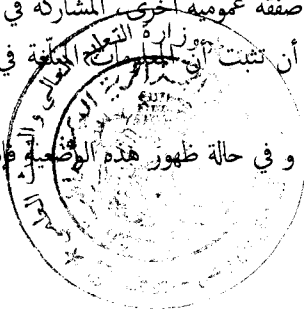 صفقة عمومية أخرى، المشاركة في
أن تثبت أن المعلومات المبلّغة في
و في حالة ظهور هذه الوضعية
وزارة التعليم العالي و البحث العلمي